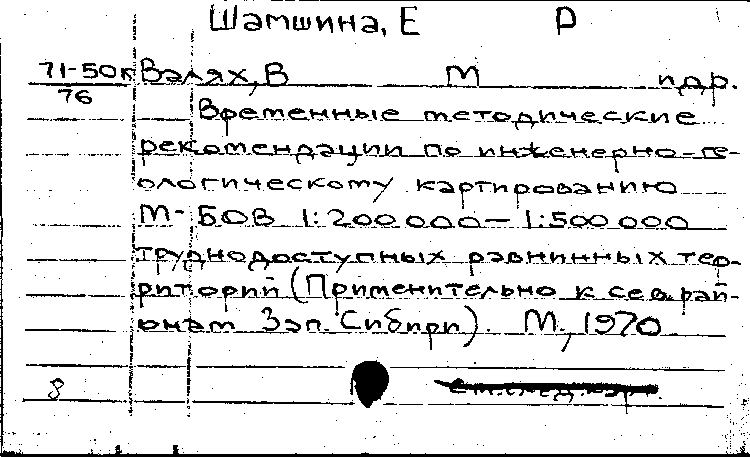 Шамшина, Е Р
71-50к Валях, В М и др.
76
Временные методические
рекомендации по инженерно-ге-
ологическому картированию
М-БОВ 1:200 000 — 1:500 000
труднодоступных равнинных тер-
риторий (Применительно к сев. рай-
онам Зап. Сибири). М., 1970
8